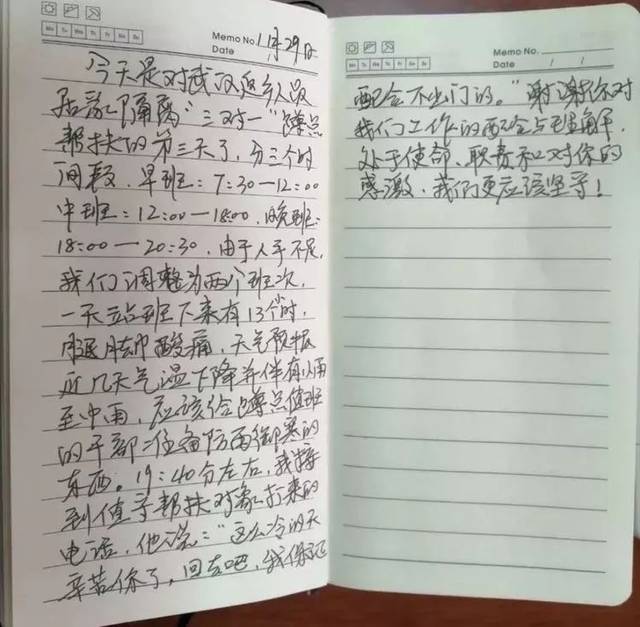 Memo No.
Date
Mo Tu We Th Fr Sa Su
1月29日
今天是对武汉返乡人员
居家隔离"三对一"蹲点
帮扶的第三天了,分三个时
间段,早班:7:30—12:00
中班:12:00—18:00,晚班:
18:00—20:30,由于人手不足,
我们调整为两个班次,
一天站班下来有13个小时,
腿脚酸痛,天气预报
近几天气温下降并伴有小雨
至中雨,应该给蹲点值班
的干部准备防雨御寒的
东西。19:40分左右,我接
到值守帮扶对象打来的
电话,他说:"这么冷的天
辛苦你了,回去吧,我保证
Memo No.
Date / /
Mo Tu We Th Fr Sa Su
配合不出门的。"谢谢你对
我们工作的配合与理解,
处于使命、职责和对你的
感激,我们更应该坚守!